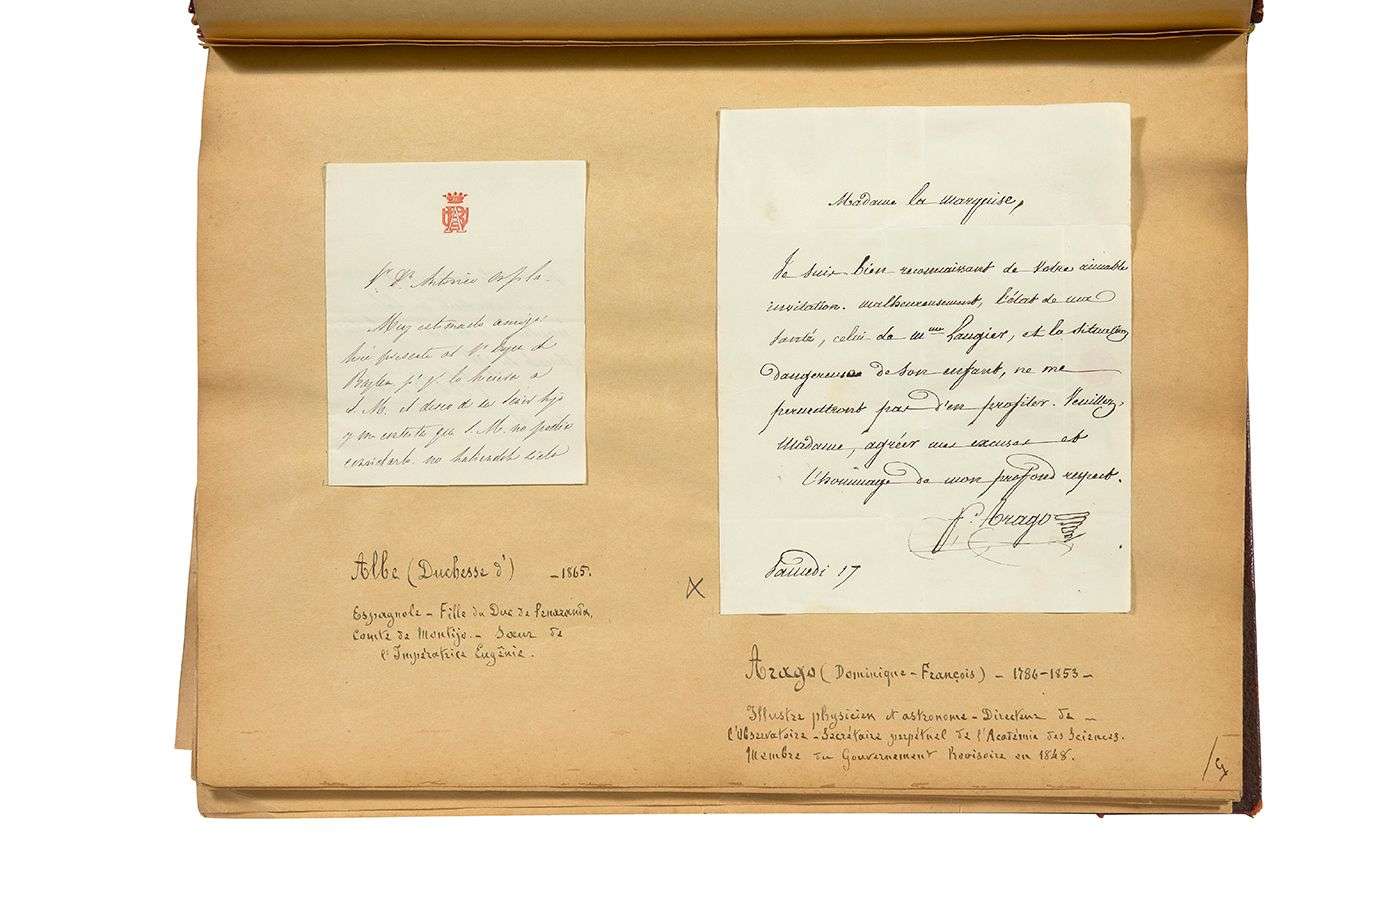 Sr. Dn. Antonio Orfila.
Muy estimado amigo:
hice presente al Sr. Duque de
a
S. M. el deseo de su hijo
y me contestó que S. M. no podía
no habiendo sido
Albe (Duchesse d') _ 1865.
Espagnole - Fille du Duc de Penaranda,
Comte de Montijo. - Sœur de
l'Impératrice Eugénie.
Madame la marquise,
Je suis bien reconnaissant de votre aimable
invitation. malheureusement, l'état de ma
santé, celui de mme Laugier, et la situation
dangereuse de son enfant, ne me
permettront pas d'en profiter. Veuillez
Madame, agréer mes excuses et
l'hommage de mon profond respect.
f. Arago
Samedi 17
X
Arago (Dominique-François) - 1786-1853 -
Illustre physicien et astronome - Directeur de -
l'Observatoire - Secrétaire perpétuel de l'Académie des Sciences.
Membre du Gouvernement Provisoire en 1848.